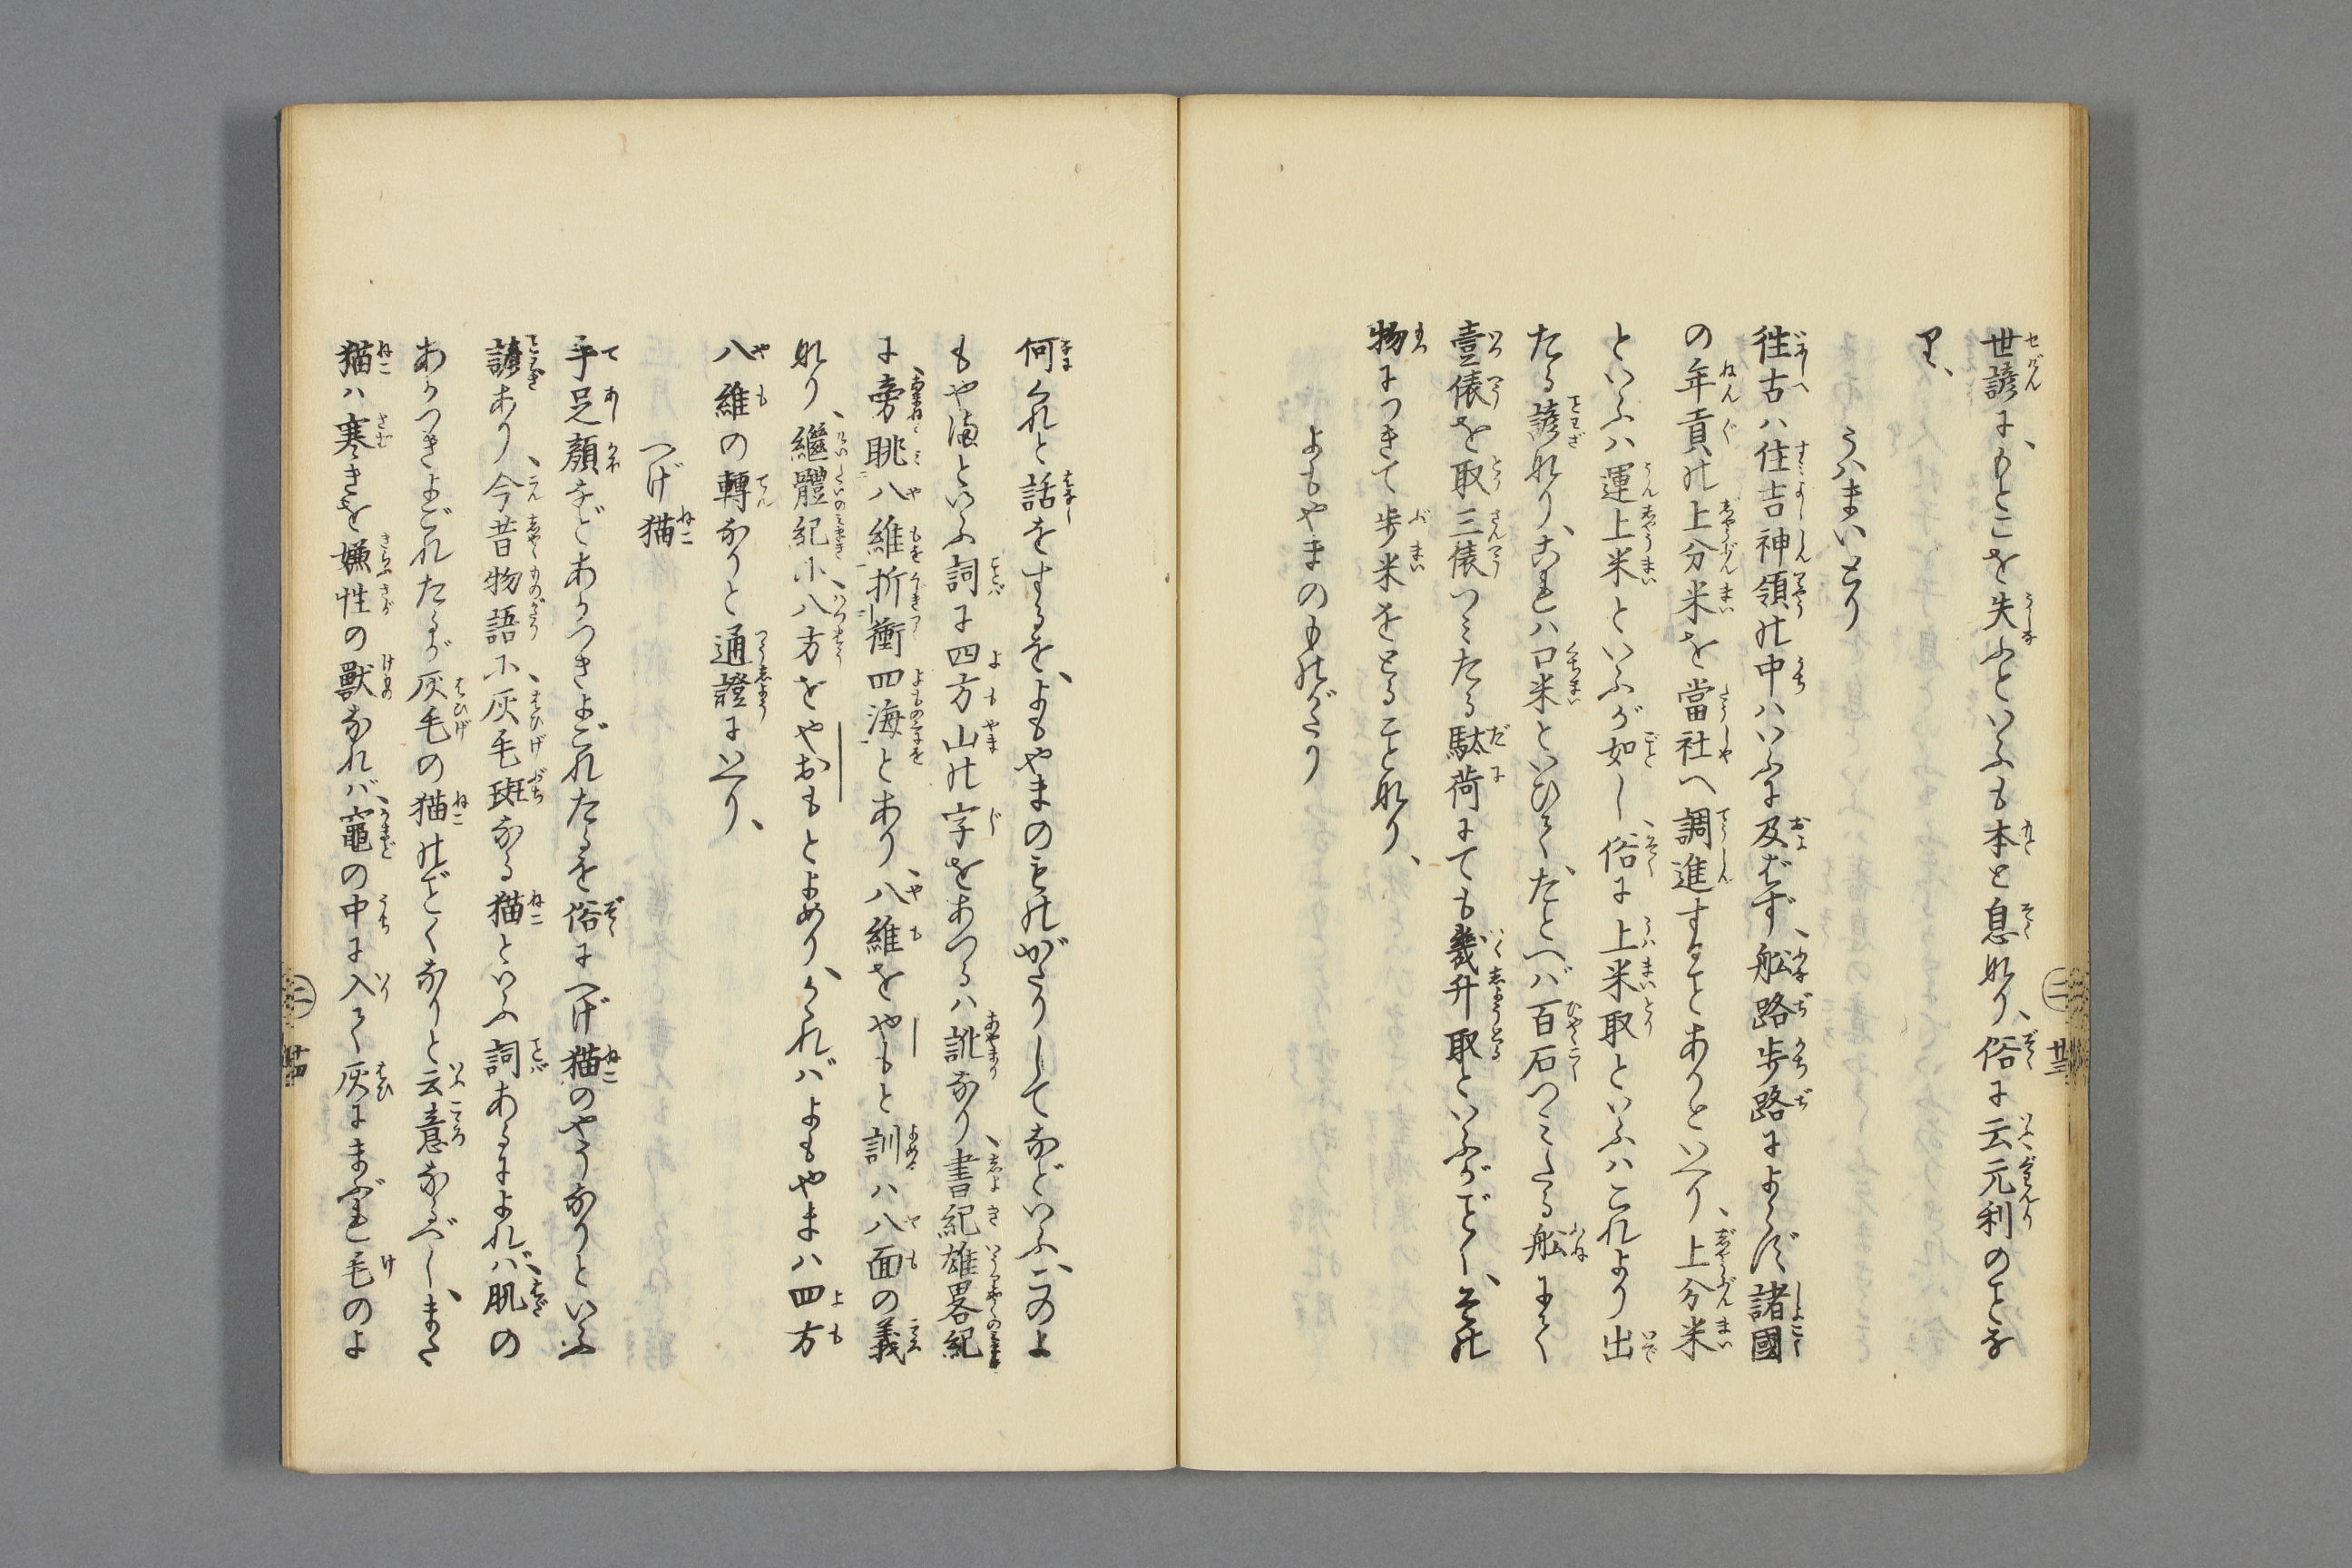 世諺に、もとこを失ふといふも本と息なり、俗に云元利のことな
り、
うハまいとり
往古ハ住吉神領の中ハいふに及ばず、舩路歩路によらず諸國
の年貢の上分米を當社へ調進することありといへり、上分米
といふハ運上米といふが如し、俗に上米取といふハこれより出
たる諺なり、これハ口米といひて、たとへバ百石つミたる舩にて
壹俵を取三俵つミたる駄荷にても幾升取といふがごとし、その
物につきて歩米をとることなり、
よもやまのものがたり
何くれと話をするを、よもやまのものがたりしてなどいふ、このよ
もや満といふ詞に四方山の字をあつるハ訛なり、書紀雄畧紀
に、旁眺八維折衝四海とあり、八維をやもと訓ハ八面の義
なり、繼體紀に、八方をやおもとよめり、かゝれバよもやまハ四方
八維の轉なりと通證にいへり、
つげ猫
手足顏などあかつきよごれたるを俗につげ猫のやうなりといふ
諺あり、今昔物語に、灰毛斑なる猫といふ詞あるによれバ、肌の
あかつきよごれたるが灰毛の猫のごとくなりと云意なるべし、また
猫ハ寒きを嫌性の獸なれバ、竈の中に入て灰にまぶれ毛のよ
二 廿三
二 廿四